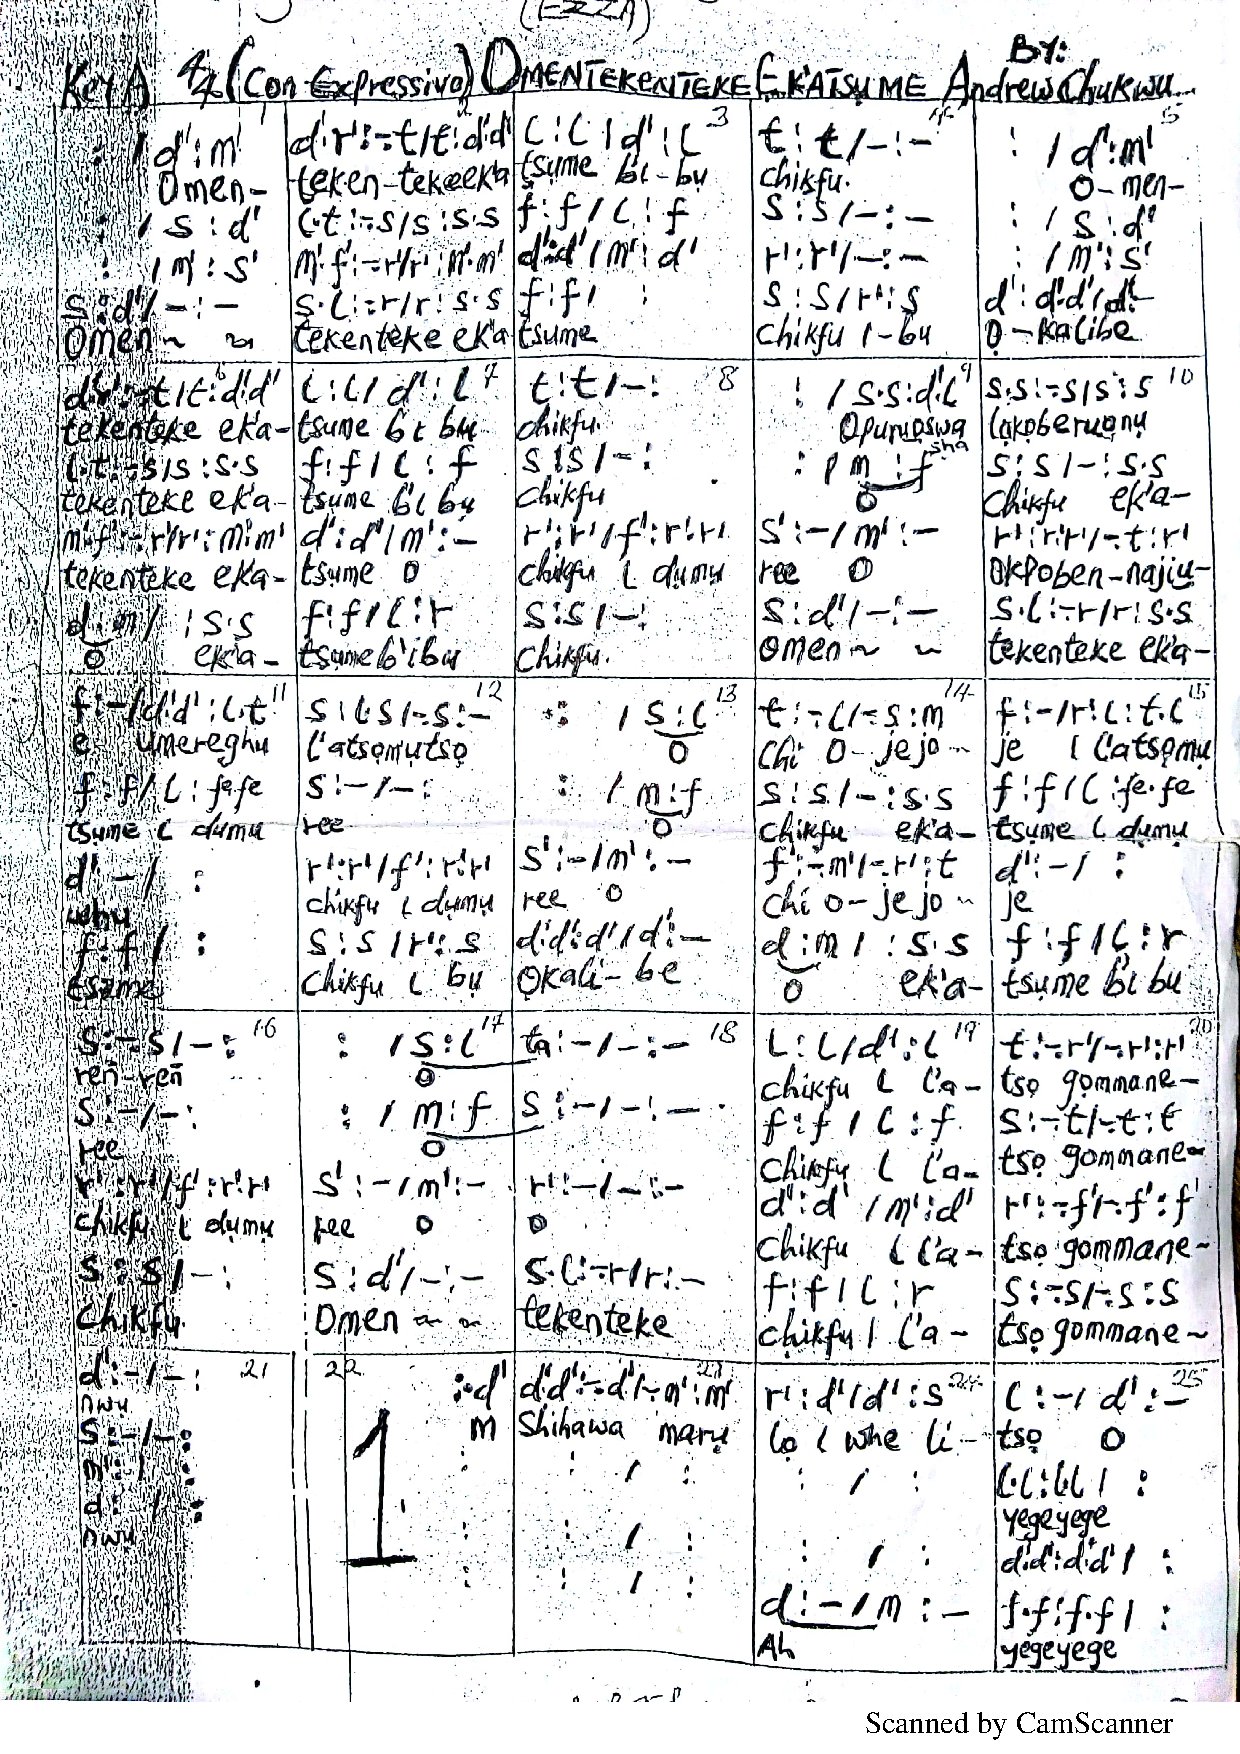 (EZZA)
Key A 4/4 (Con Expressivo) OMENTEKENTEKE EK'ATSUME By: Andrew Chukwu
: / d' : m' | d'.r' : -.t / t : d'.d' | l : l / d' : l 3 | t : t / - : - 4 | : / d' : m' 5
Omen- | teken-tekeeka | tsụme bi-bụ | chikfu. | O-men-
: / s : d' | l.t : -.s / s : s.s | f : f / l : f | s : s / - : - | : / s : d'
: / m' : s' | m'.f' : -.r' / r' : m'.m' | d' : d' / m' : d' | r' : r' / - : - | : / m' : s'
s : d' / - : - | s.l : -.r / r : s.s | f : f / : | s : s / r' : s | d' : d'.d' / d' : -
Omen~ ~ | tekenteke ek'a | tsụme | chikfu l-bu | Ọ-kalibe
d'.r' : -.t / t : d'.d' 6 | l : l / d' : l 7 | t : t / - : 8 | : / s.s : d'.l 9 | s.s : -.s / s : s 10
tekenteke eka- | tsume bi bu | chikfu. | Opuruoswa sha | lakoberuonu
l.t : -.s / s : s.s | f : f / l : f | s : s / - : | : / m : f | s : s / - : s.s
tekenteke ek'a- | tsụme b'i bụ | chikfu | O | Chikfu ek'a-
m'.f' : -.r' / r' : m'.m' | d' : d' / m' : - | r' : r' / f' : r'.r' | s' : - / m' : - | r' : r'.r' / -.t : r'
tekenteke eka- | tsume O | chikfu l dumu | ree O | Okpoben-najiu-
d : m / : s.s | f : f / l : r | s : s / - : | s : d' / - : - | s.l : -.r / r : s.s
O ek'a- | tsume b'ibu | Chikfu. | Omen~ ~ | tekenteke eka-
f : - / d'.d' : l.t 11 | s : l.s / -.s : - 12 | : / s : l 13 | t : -.l / -.s : m 14 | f : - / r'.l : t.l 15
e umereghu | l'atsomutso | O | Chi O-jejo~ | je l l'atsomu
f : f / l : fe.fe | s : - / - : | : / m : f | s : s / - : s.s | f : f / l : fe.fe
tsume l dumu | ree | O | chikfu eka- | tsume l dumu
d' : - / : | r' : r' / f' : r'.r' | s' : - / m' : - | f' : -.m' / -.r' : t | d' : - / :
whu | chikfu l dumu | ree O | Chi O-jejo~ | je
f : f / : | s : s / r' : s | d'.d' : d' / d' : - | d : m / : s.s | f : f / l : r
tsume | Chikfu l bu | Okali-be | O ek'a- | tsume bi bu
s : -.s / - : 16 | : / s : l 17 | ta : - / - : - 18 | l : l / d' : l 19 | t : -.r' / -.r' : r' 20
ren-ren | O | chikfu l l'a- | tsọ gommane-
s : - / - : | : / m : f | s : - / - : - | f : f / l : f | s : -.t / -.t : t
ree | O | chikfu l l'a- | tsọ gommane-
r' : r' / f' : r'.r' | s' : - / m' : - | r' : - / - : - | d' : d' / m' : d' | r' : -.f' / -.f' : f'
chikfu l dumu | ree O | O | Chikfu l l'a- | tsọ gommane-
s : s / - : | s : d' / - : - | s.l : -.r / r : - | f : f / l : r | s : -.s / -.s : s
Chikfu. | Omen~ ~ | tekenteke | chikfu l l'a- | tsọ gommane~
d' : - / - : 21 | 22 : d' | d'.d' : -.d' / -.m' : m' 23 | r' : d' / d' : s 24 | l : - / d' : - 25
nwu | M | Shihawa maru | lọ l whe li- | tsọ O
s : - / - : | : | : / : | : / : | l.l : l.l / :
yegeyege
m' : - / : | 1 | : | : / : | : / : | d'.d' : d'.d' / :
d : - / - : | : | : / : | d : - / m : - | f.f : f.f / :
nwu | Ah | yegeyege
Scanned by CamScanner